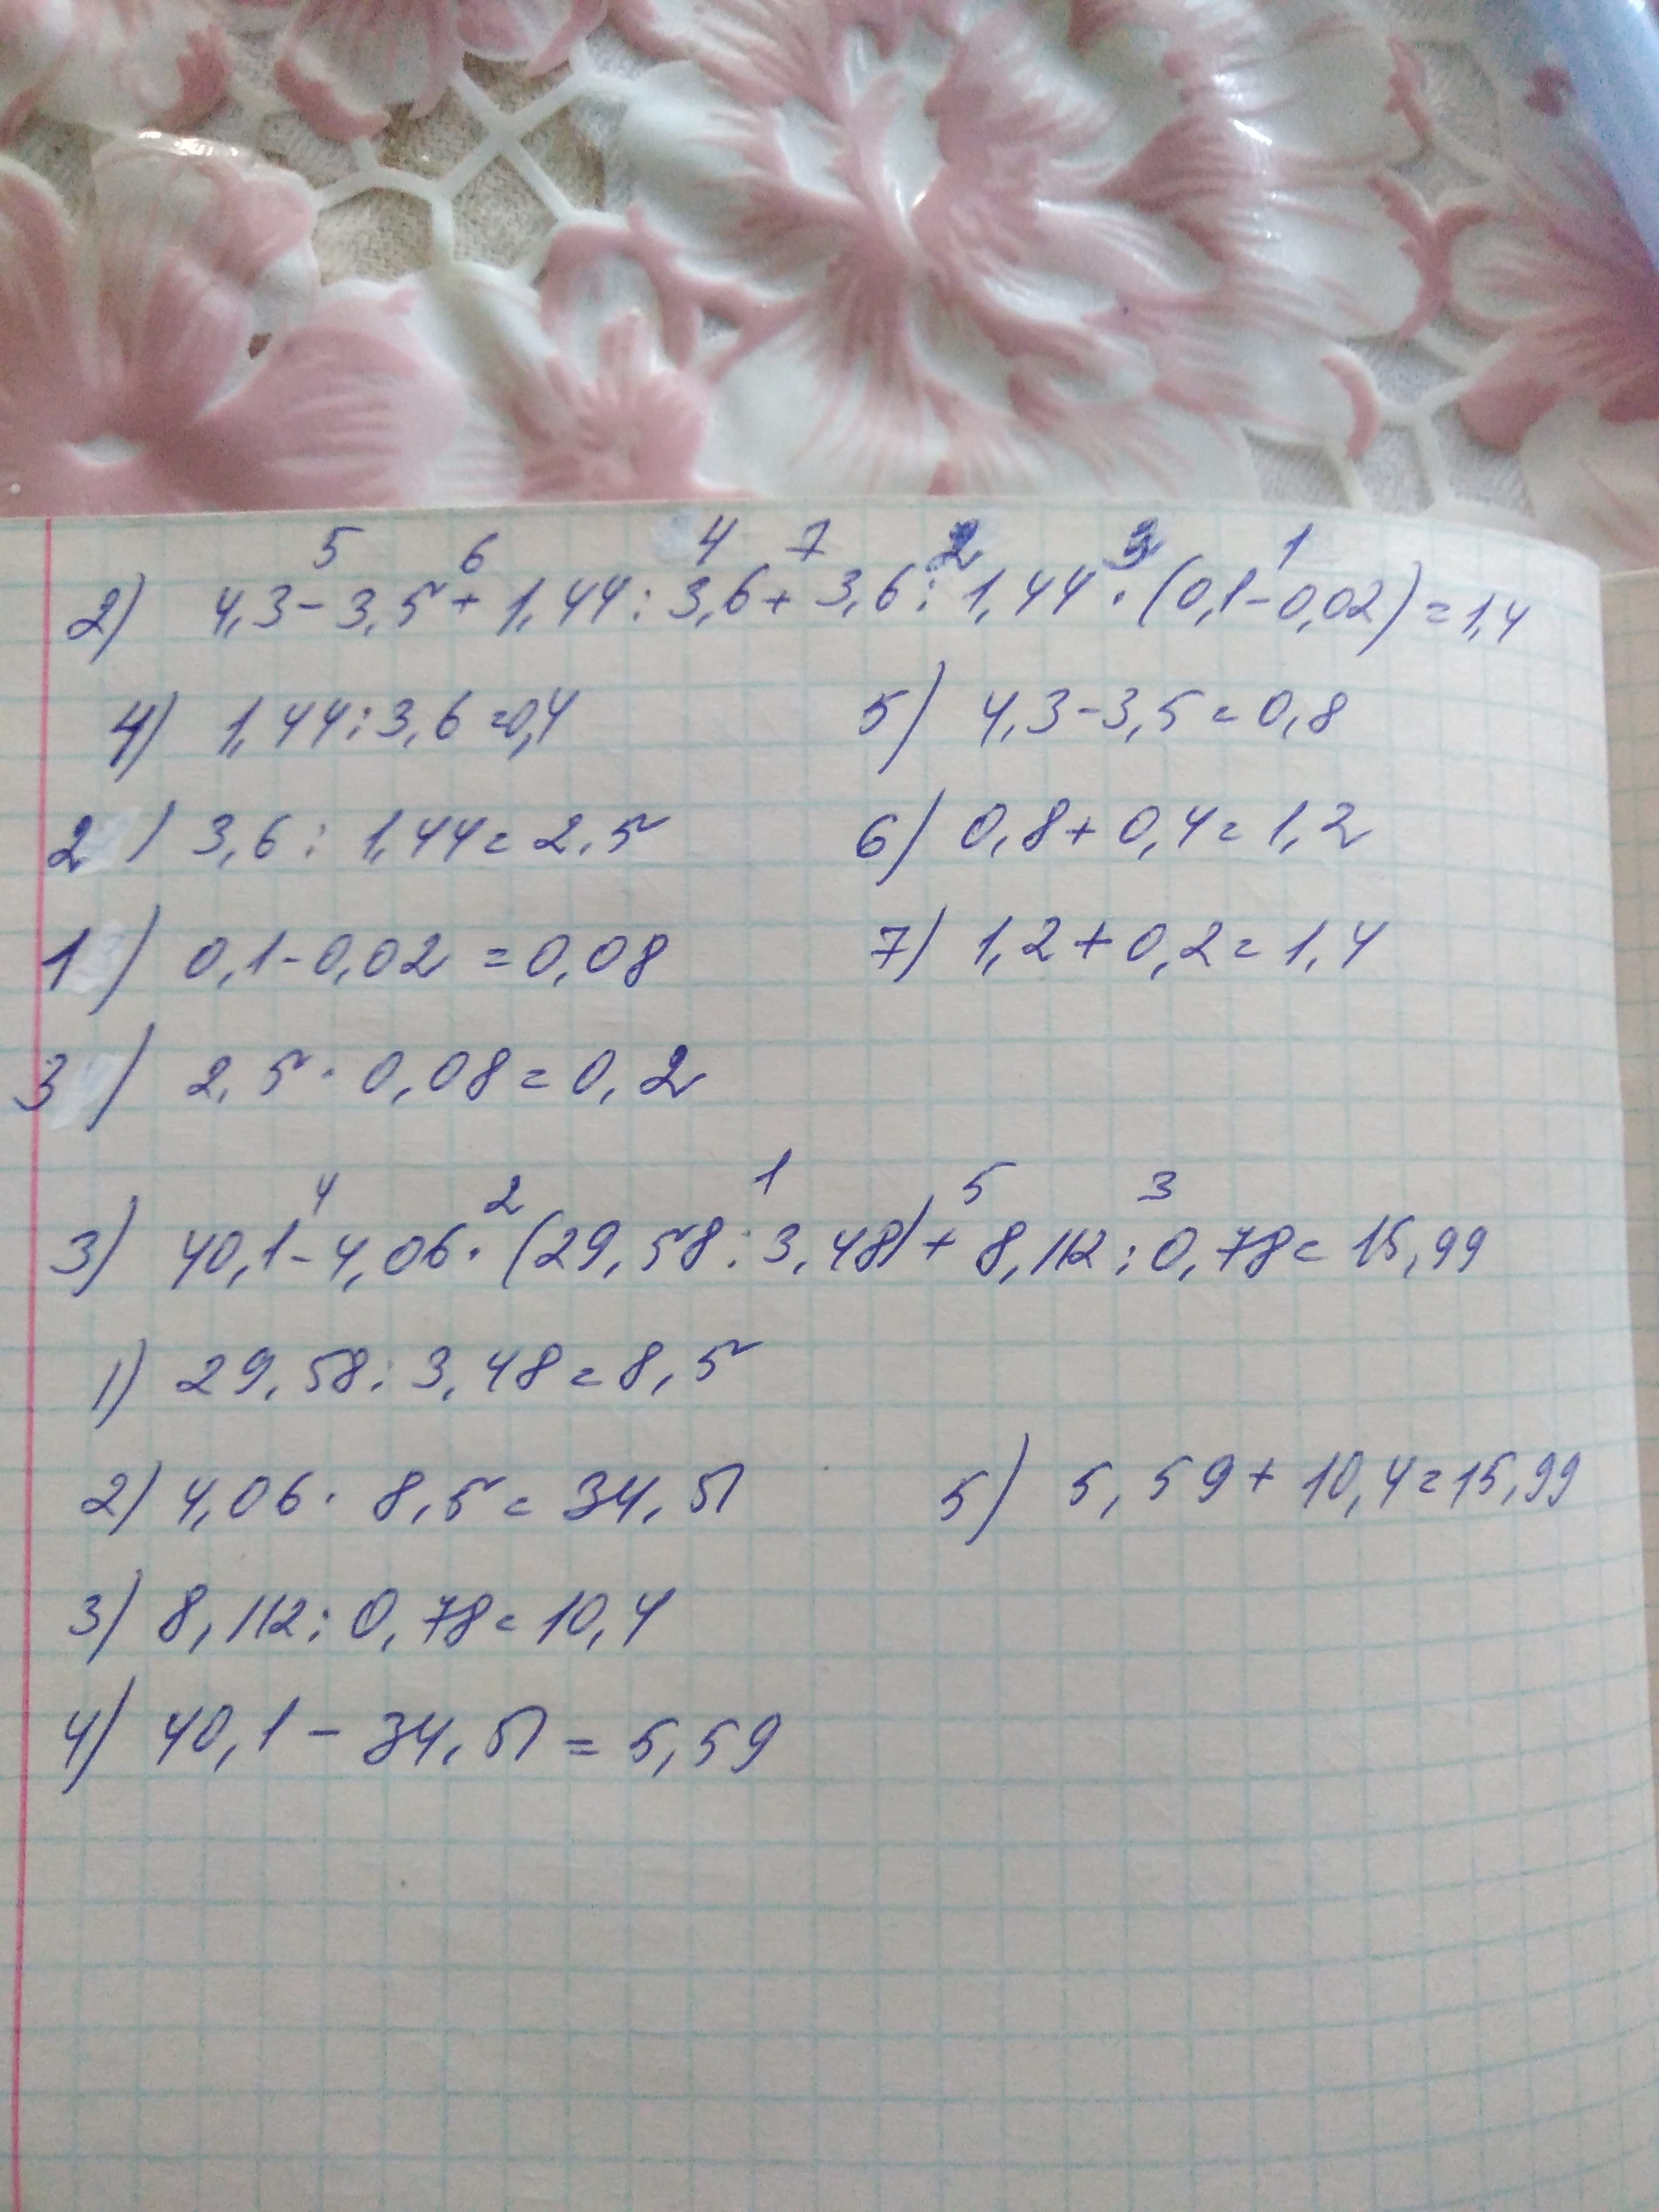 5 6 4 7 2 3 1
2) 4,3-3,5+1,44:3,6+3,6:1,44·(0,1-0,02)=1,4
4) 1,44:3,6=0,4 5) 4,3-3,5=0,8
2) 3,6:1,44=2,5 6) 0,8+0,4=1,2
1) 0,1-0,02=0,08 7) 1,2+0,2=1,4
3) 2,5·0,08=0,2
4 2 1 5 3
3) 40,1-4,06·(29,58:3,48)+8,112:0,78=15,99
1) 29,58:3,48=8,5
2) 4,06·8,5=34,51 5) 5,59+10,4=15,99
3) 8,112:0,78=10,4
4) 40,1-34,51=5,59